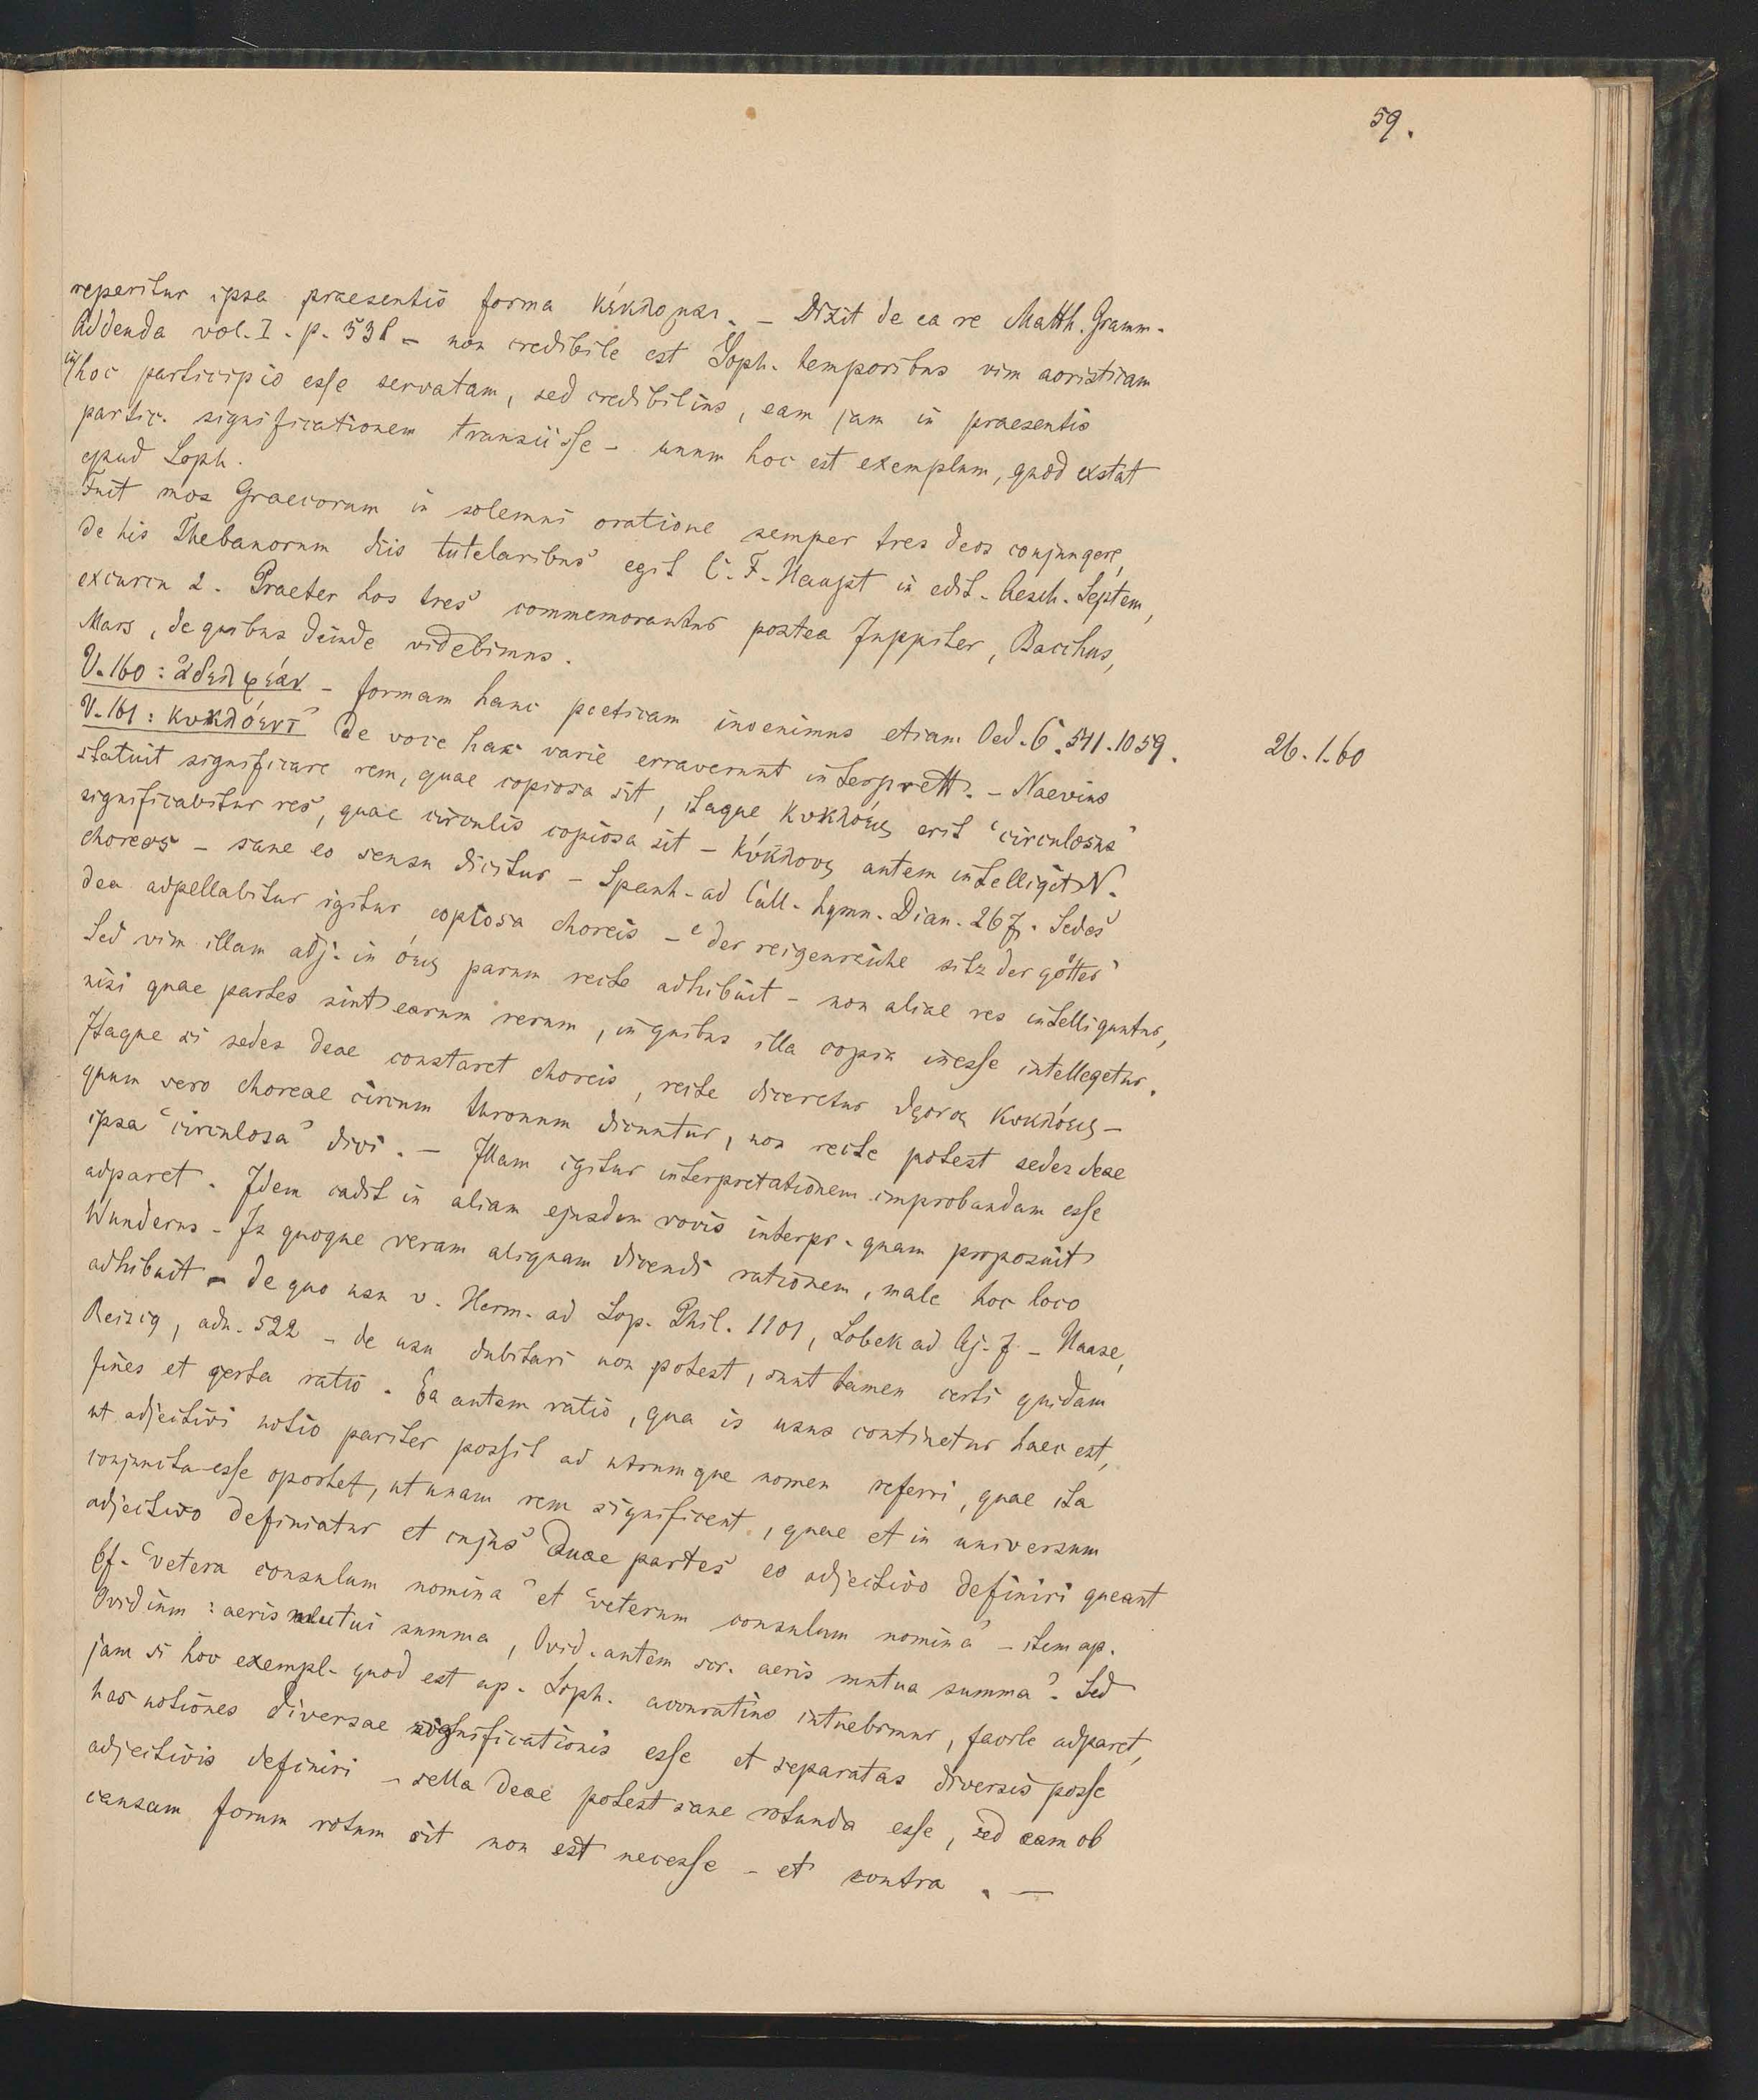 59.
reperitur ipsa praesentis forma κέκλομαι. – Dixit de ea re Matth. Gramm.
Addenda vol. I. p. 538 – non credibile est Soph. temporibus vim aoristicam
in hoc participio esse servatam, sed credibilius, eam jam in praesentis
partic. significationem transiisse – unum hoc est exemplum, quod exstat
apud Soph.
Fuit mos Graecorum in solemni oratione semper tres deos conjungere,
de his Thebanorum diis tutelaribus egit C. F. Haupt in edit. Aesch. Septem,
excursu 2. Praeter hos tres commemorantur postea Juppiter, Bacchus,
Mars, de quibus deinde videbimus.
V. 160: ἀδελφεάν – formam hanc poeticam invenimus etiam Oed. C. 511. 1059.
26. 1. 60
V. 161: κυκλόεντ’ De voce hac varie erraverunt interprett. – Naevius
statuit significare rem, quae copiosa sit, itaque κυκλόεις erit “circulosus”
significabitur res, quae circulis copiosa sit – κύκλους antem intelligit N.
choreas – sane eo sensu dicitur – Spanh. ad Call. hymn. Dian. 267. Sedes
dea adpellabitur igitur copiosa choreis – “der reigenreiche sitz der götter”
Sed vim illam adj. in όεις parum recte adhibuit – non aliae res intelliguntur,
nisi quae partes sint earum rerum, in quibus illa copia inesse intellegetur.
Itaque si sedes deae constaret choreis, recte diceretur θρόνος κυκλόεις –
quum vero choreae circum thronum dicuntur, non recte potest sedes deae
ipsa “circulosa” dici. – Illam igitur interpretationem improbandam esse
adparet. Idem cadit in aliam ejusdem vocis interpr. quam proposuit
Wunderus – Is quoque veram aliquam dicendi rationem, male hoc loco
adhibuit – de quo usu v. Herm. ad Sop. Phil. 1101, Lobek ad Aj. 7 – Haase,
Reisig, adn. 522 – de usu dubitari non potest, sunt tamen certi quidam
fines et certa ratio. Ea autem ratio, qua is usus continetur haec est,
ut adjectivi notio pariter possit ad utrumque nomen referri, quae ita
conjuncta esse oportet, ut unam rem significent, quae et in universum
adjectivo definiatur et cujus duae partes eo adjectivo definiri queant
Cf. “vetera consulum nomina” et “veterum consulum nomina” – item ap.
Ovidium: aeris mutui summa, Ovid. autem scr. aeris mutua summa”. Sed
jam si hoc exempl. quod est ap. Soph. accuratius intuebimur, facile adparet,
has notiones diversae significationis esse et separatas diversis posse
adjectivis definiri – sella deae potest sane rotunda esse, sed eam ob
causam forum rotum sit non est necesse – et contra. –